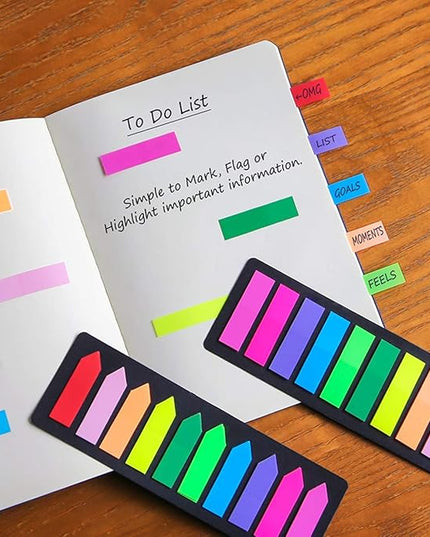 To Do List
Simple to Mark, Flag or
Highlight important information.
←OMG
LIST
GOALS
MOMENTS
FEELS